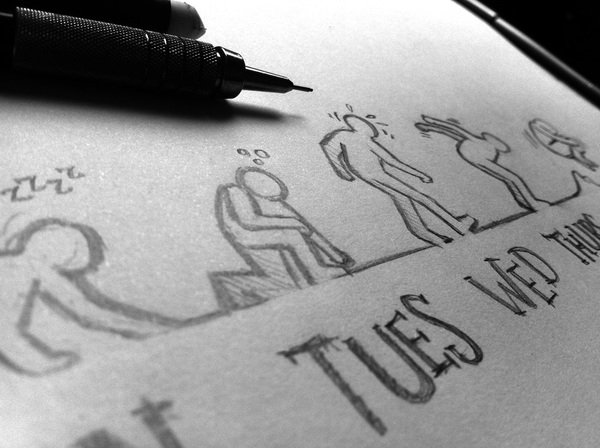 zzzz
TUES WED THURS